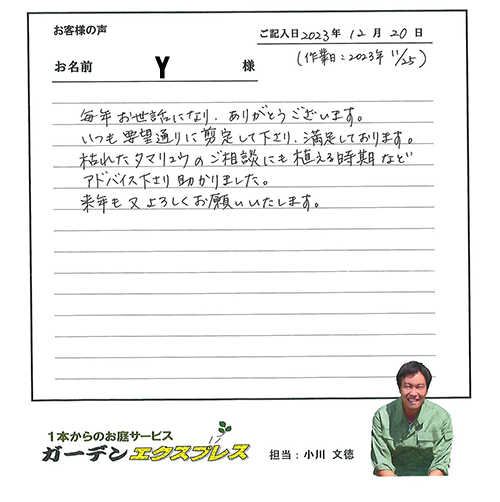 お客様の声
ご記入日 2023年 12月 20日
(作業日:2023年 11/25)
お名前 Y 様
毎年お世話になり、ありがとうございます。
いつも要望通りに剪定して下さり、満足しております。
枯れたタマリュウのご相談にも植える時期など
アドバイス下さり助かりました。
来年も又よろしくお願いいたします。
1本からのお庭サービス
ガーデンエクスプレス
担当:小川 文徳